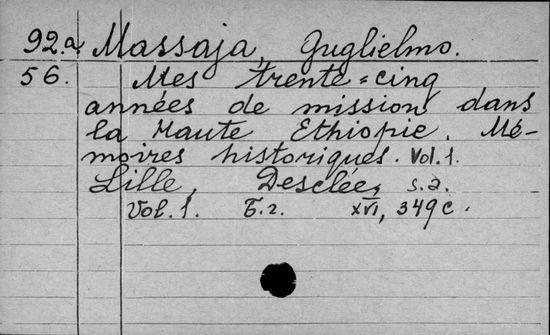 92.a. Massaja, Guglielmo.
56. Mes trente=cinq
années de mission dans
la Haute Ethiopie. Mé-
moires historiques. Vol. 1.
Lille, Desclée, s.a.
Vol. 1. Б.г. XVI, 349 с.